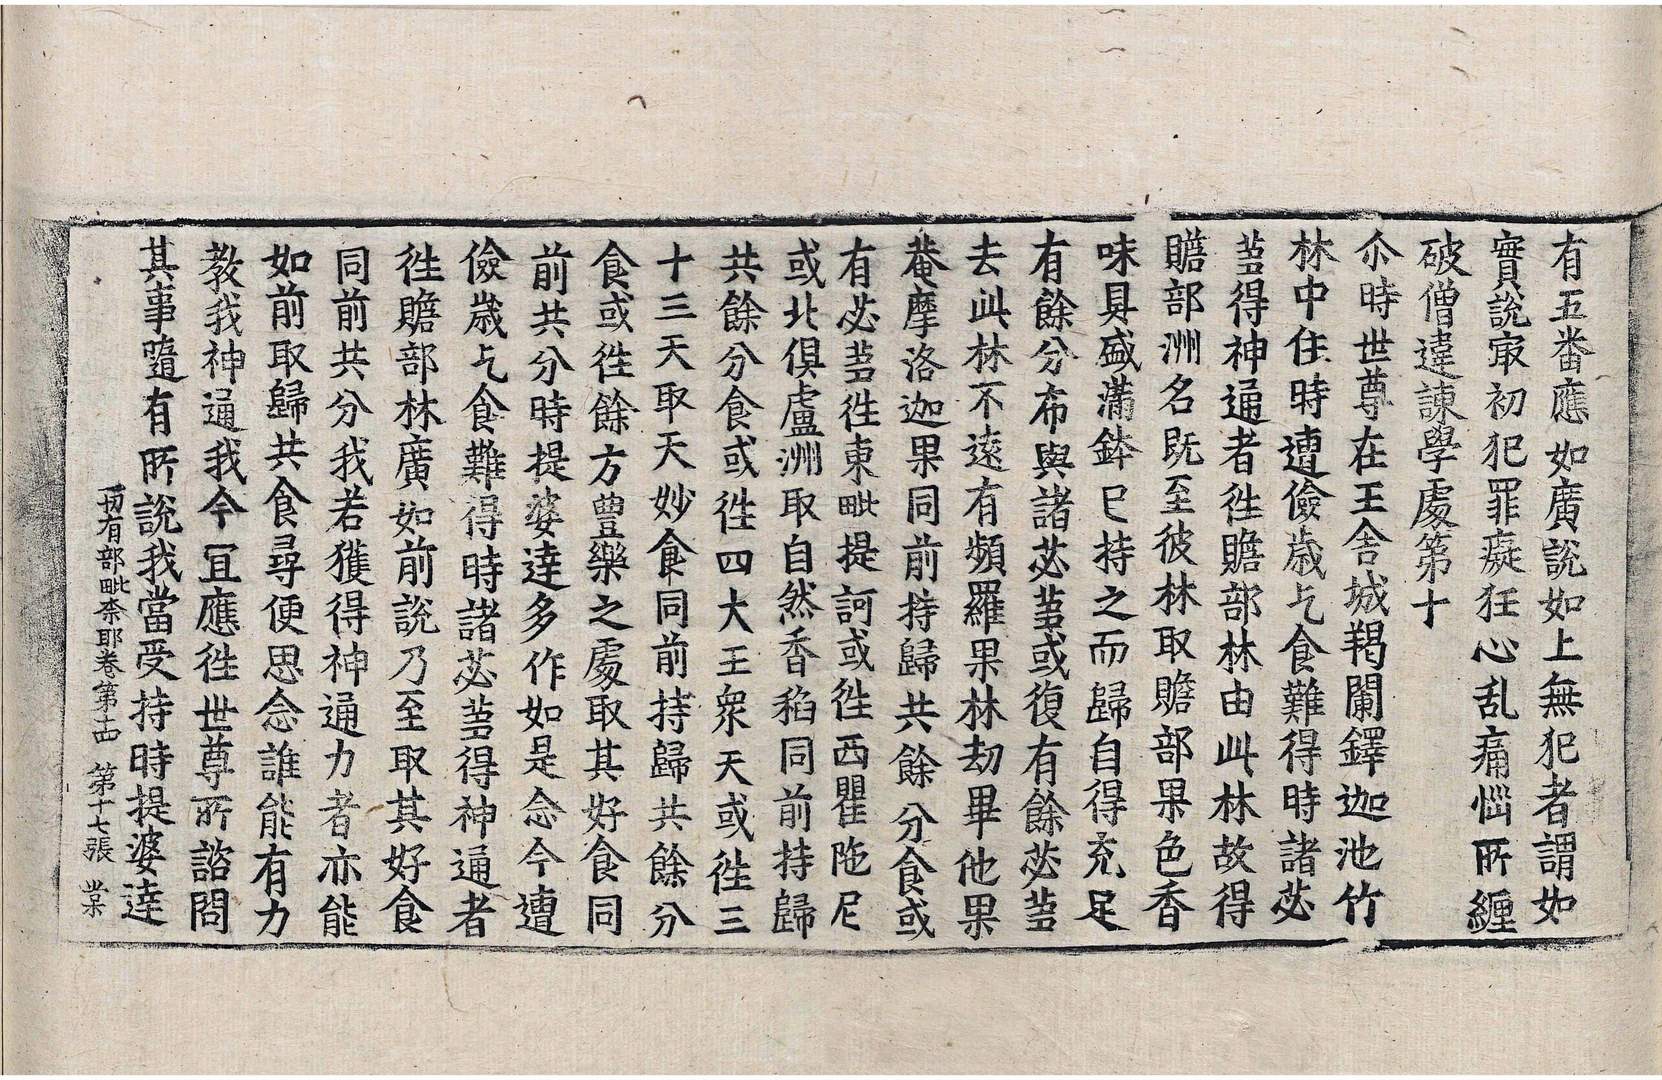 有五番應如廣說如上無犯者謂如
實說㝡初犯罪癡狂心乱痛惱所纏
破僧違諫學處第十
尒時世尊在王舍城羯闌鐸迦池竹
林中住時遭儉歲乞食難得時諸苾
芻得神通者往贍部林由此林故得
贍部洲名既至彼林取贍部果色香
味具盛滿鉢已持之而歸自得充足
有餘分布與諸苾芻或復有餘苾芻
去此林不遠有頻羅果林劫畢他果
菴摩洛迦果同前持歸共餘分食或
有苾芻往東毗提訶或往西瞿陁尼
或北俱盧洲取自然香稻同前持歸
共餘分食或往四大王衆天或往三
十三天取天妙食同前持歸共餘分
食或往餘方豊樂之處取其好食同
前共分時提婆達多作如是念今遭
儉歲乞食難得時諸苾芻得神通者
往贍部林廣如前說乃至取其好食
同前共分我若獲得神通力者亦能
如前取歸共食尋便思念誰能有力
教我神通我今冝應往世尊所諮問
其事隨有所說我當受持時提婆達
一切有部毗柰耶卷第十四 第十七張 業